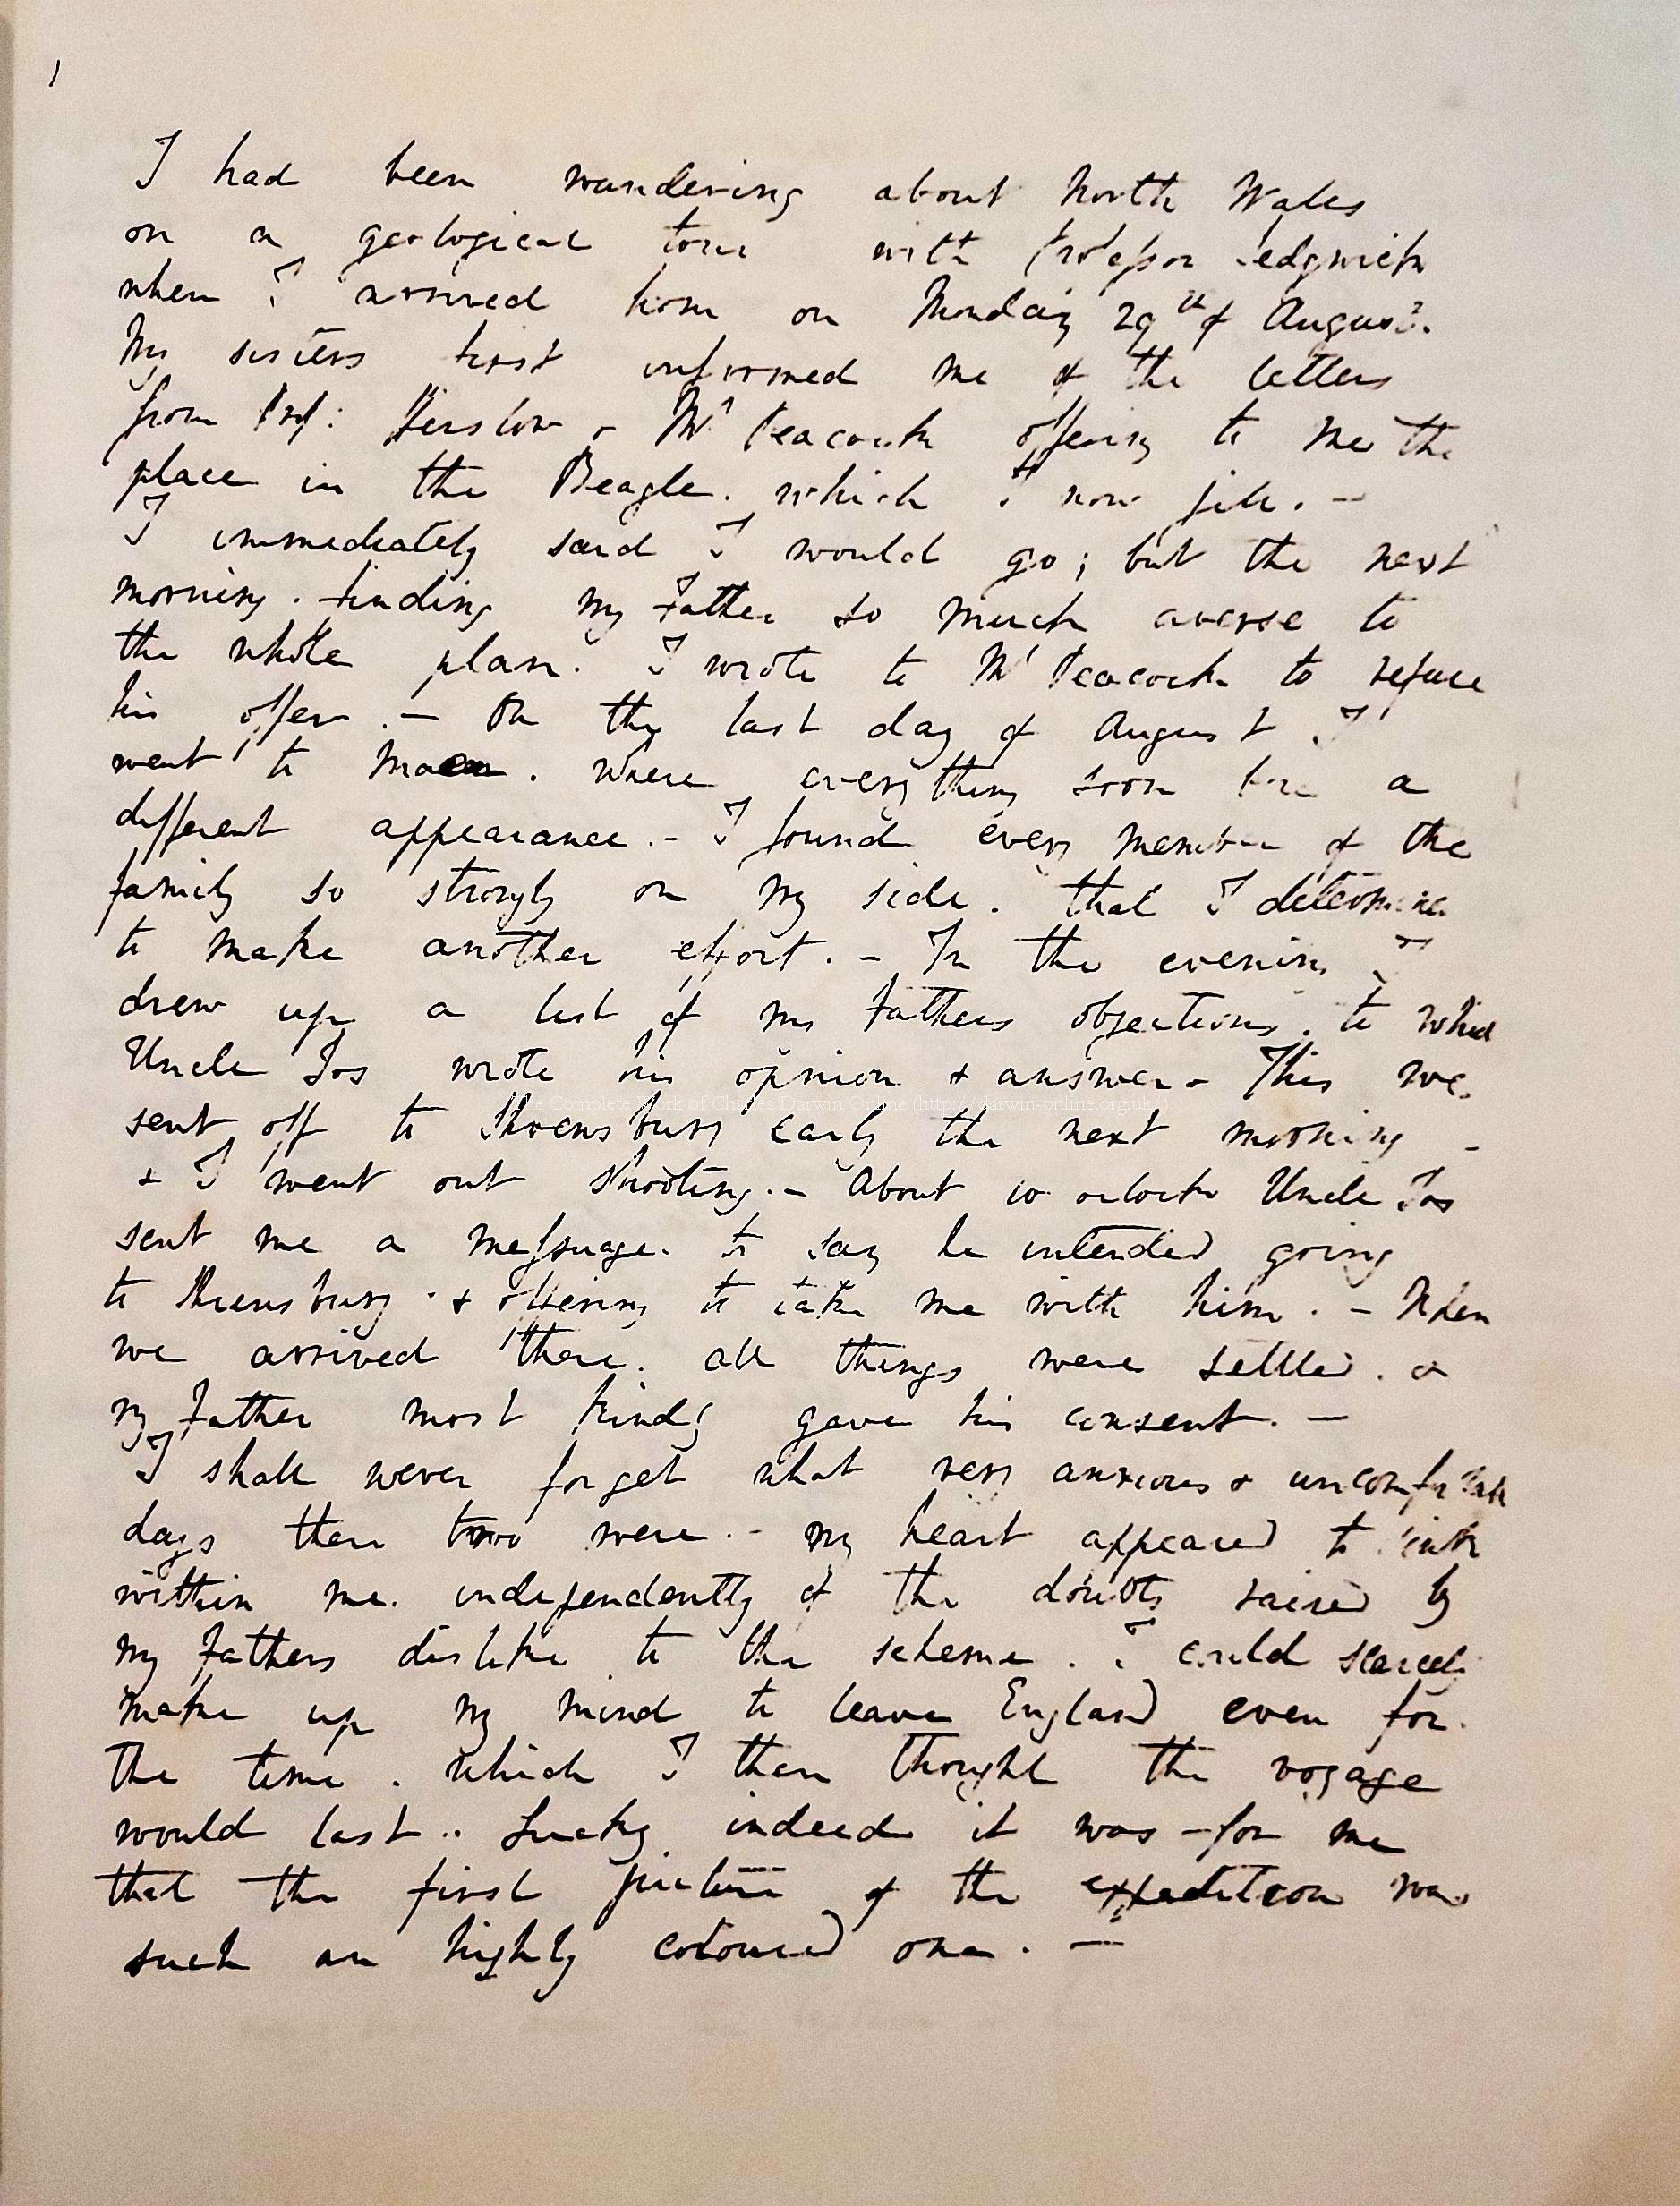 1
I had been wandering about North Wales
on a geological tour with Professor Sedgwick
when I arrived home on Monday 29th of August.
My sisters first informed me of the letters
from Prof: Henslow & Mr Peacock offering to me the
place in the Beagle. which I now fill. —
I immediately said I would go; but the next
morning. finding my Father so much averse to
the whole plan. I wrote to Mr Peacock to refuse
his offer. — On the last day of August I
went to Maer. where everything soon bore a
different appearance. - I found every member of the
family so strongly on my side. that I determined
to make another effort. - In the evening I
drew up a list of my Fathers objections. to which
Uncle Jos wrote his opinion & answer. This we
sent off to Shrewsbury early the next morning
& I went out shooting. - About 10 oclock Uncle Jos
sent me a message. to say he intended going
to Shrewsbury & offering to take me with him. - When
we arrived there. all things were settled. &
my Father most kindly gave his consent. —
I shall never forget what very anxious & uncomfortable
days these two were. - my heart appeared to sink
within me. independently of the doubts raised by
my Fathers dislike to the scheme. I could scarcely
make up my mind to leave England even for
the time. which I then thought the voyage
would last. Lucky indeed it was for me
that the first picture of the expedition was
such an highly coloured one. —